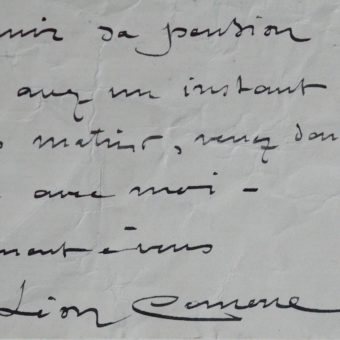 sa pension
avez un instant
matins, venez don
avec moi -
ment à vous
Léon